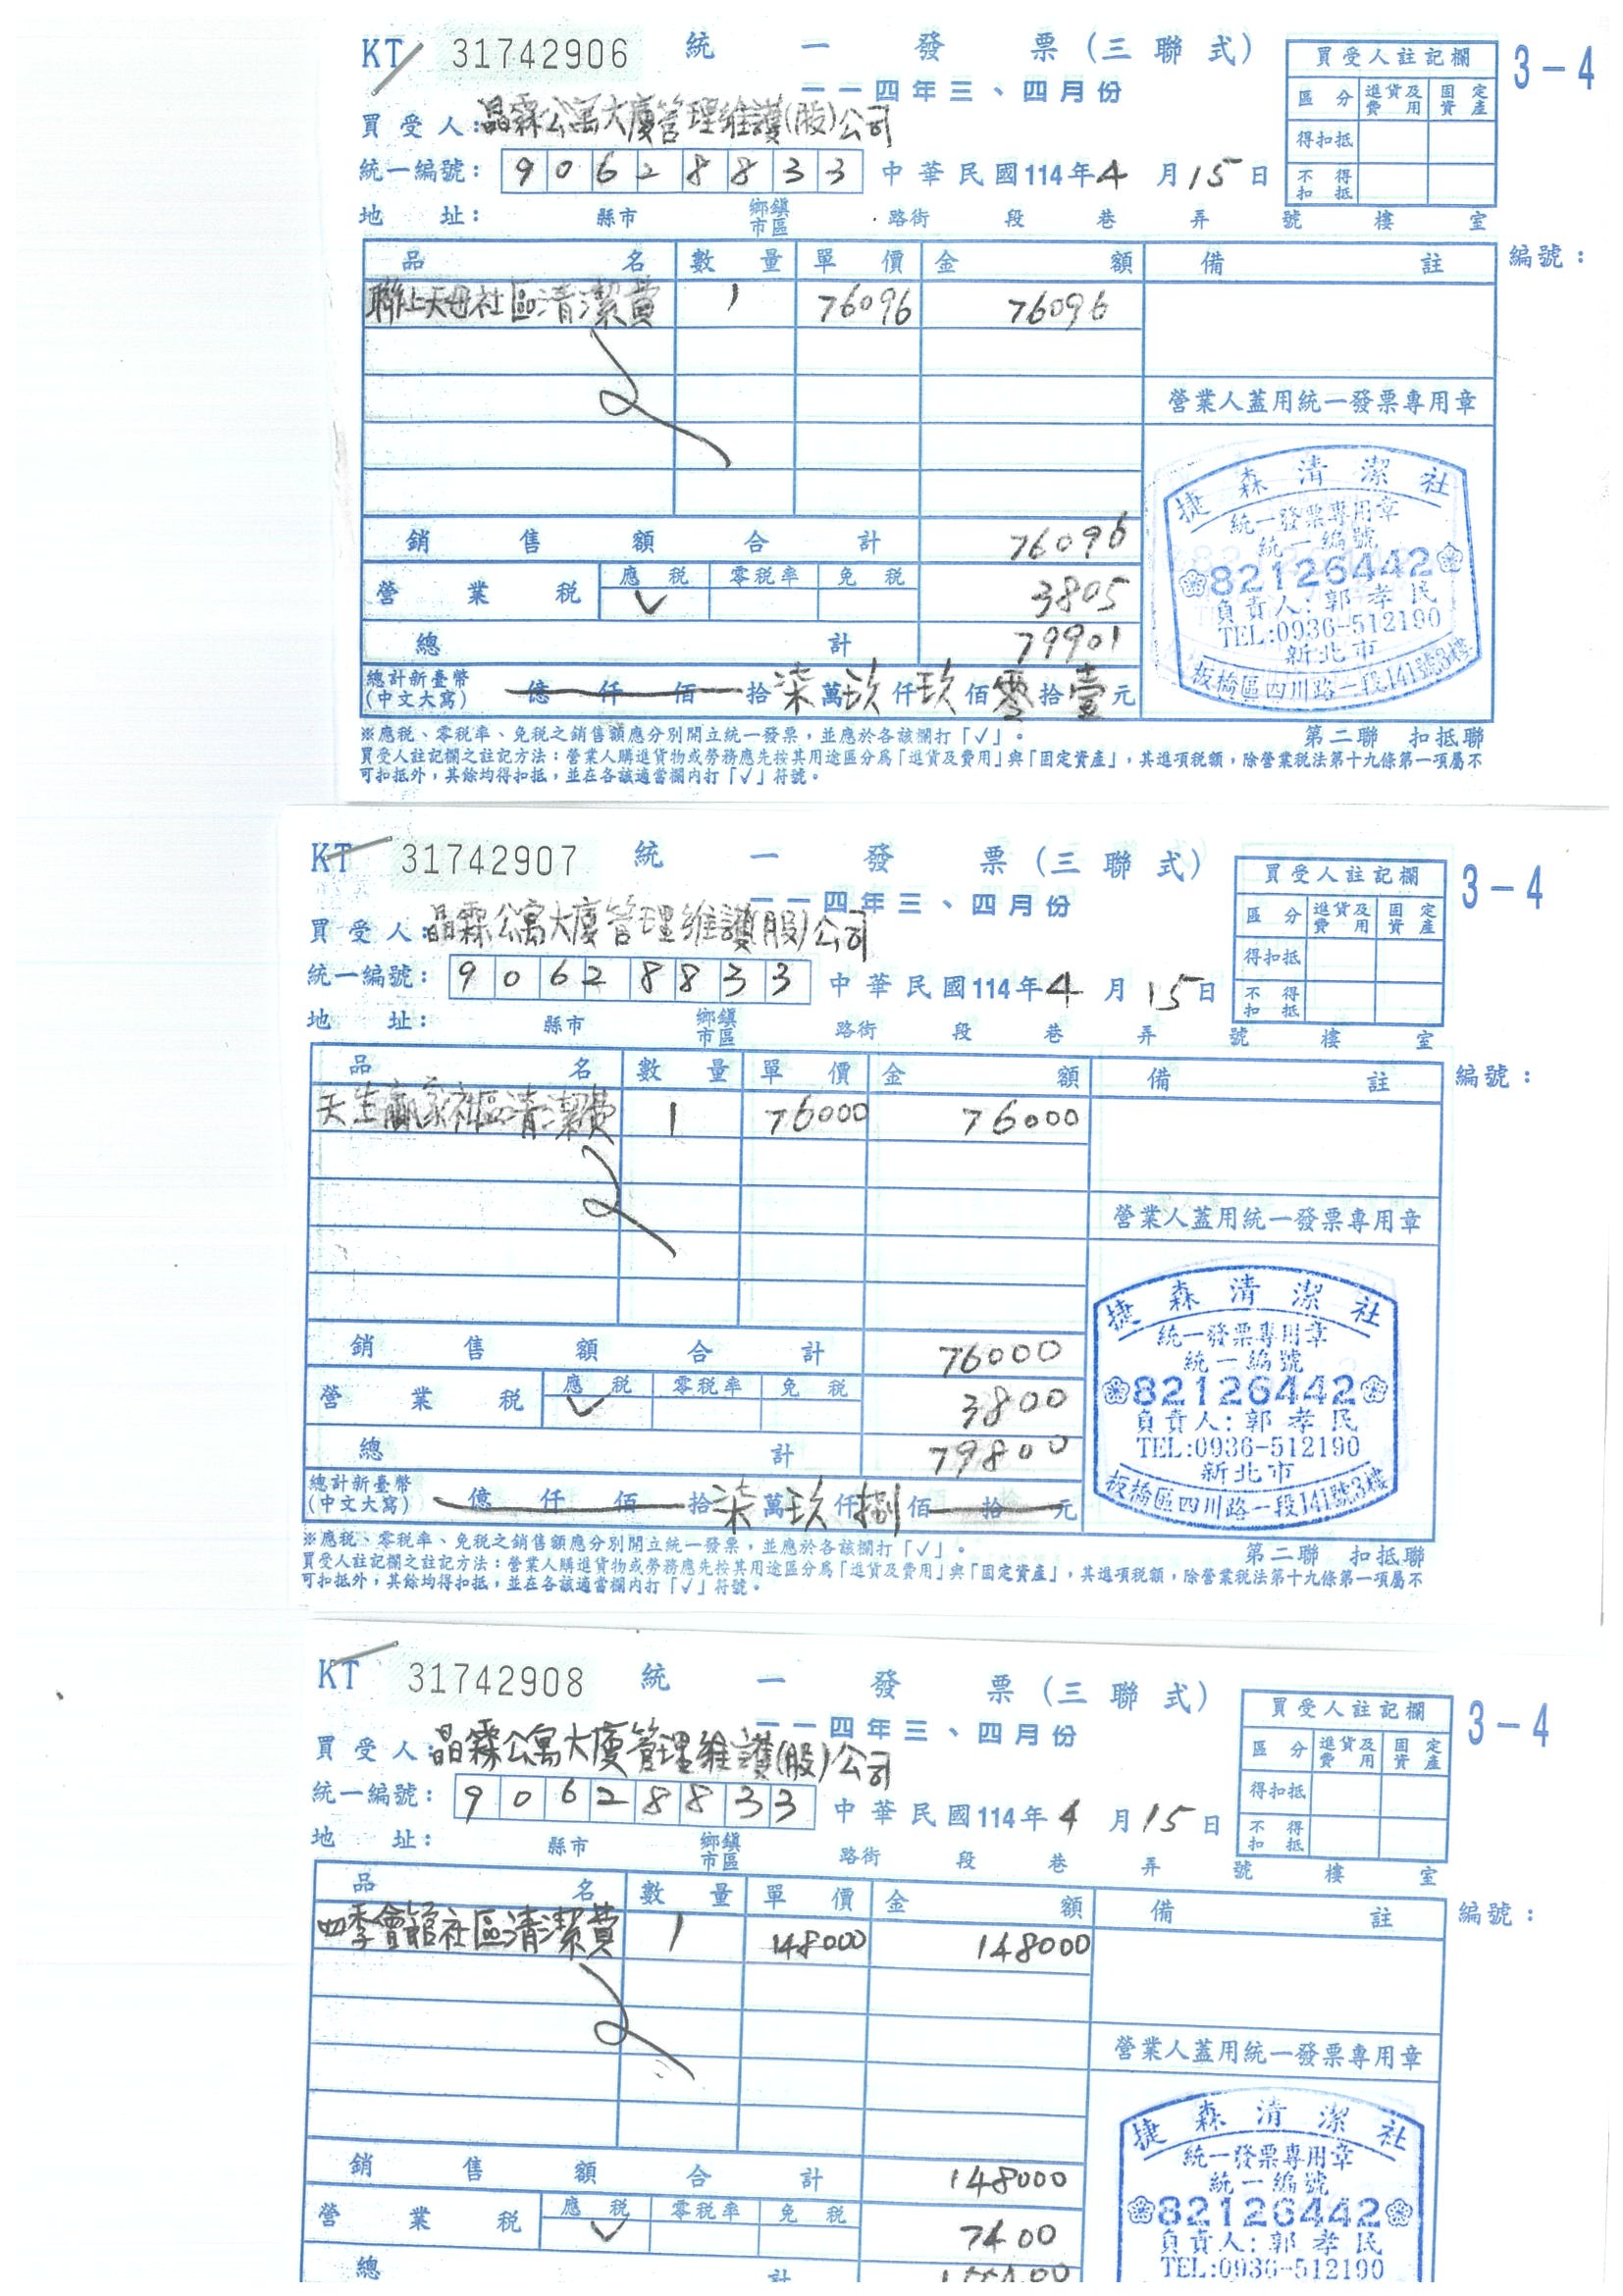 KT 31742906 統一發票(三聯式)
一一四年三、四月份
3-4
買受人註記欄
區分 進貨及費用 固定資產
得扣抵
不得扣抵
買受人:晶霖公寓大廈管理維護(股)公司
統一編號: 90628833 中華民國114年4月15日
地址: 縣市 鄉鎮市區 路街 段 巷 弄 號 樓 室
品名 數量 單價 金額 備註 編號:
聯上天母社區清潔費 1 76096 76096
營業人蓋用統一發票專用章
捷森清潔社
統一發票專用章
統一編號
82126442
負責人:郭孝民
TEL:0936-512190
新北市
板橋區四川路一段141號3樓
銷售額合計 76096
營業稅 應稅 ✓ 零稅率 免稅 3805
總計 79901
總計新臺幣(中文大寫) 億仟佰拾柒萬玖仟玖佰零拾壹元
※應稅、零稅率、免稅之銷售額應分別開立統一發票,並應於各該欄打「✓」。
第二聯 扣抵聯
買受人註記欄之註記方法:營業人購進貨物或勞務應先按其用途區分為「進貨及費用」與「固定資產」,其進項稅額,除營業稅法第十九條第一項屬不
可扣抵外,其餘均得扣抵,並在各該適當欄內打「✓」符號。
KT 31742907 統一發票(三聯式)
一一四年三、四月份
3-4
買受人註記欄
區分 進貨及費用 固定資產
得扣抵
不得扣抵
買受人:晶霖公寓大廈管理維護(股)公司
統一編號: 90628833 中華民國114年4月15日
地址: 縣市 鄉鎮市區 路街 段 巷 弄 號 樓 室
品名 數量 單價 金額 備註 編號:
天生贏家社區清潔費 1 76000 76000
營業人蓋用統一發票專用章
捷森清潔社
統一發票專用章
統一編號
82126442
負責人:郭孝民
TEL:0936-512190
新北市
板橋區四川路一段141號3樓
銷售額合計 76000
營業稅 應稅 ✓ 零稅率 免稅 3800
總計 79800
總計新臺幣(中文大寫) 億仟佰拾柒萬玖仟捌佰拾元
※應稅、零稅率、免稅之銷售額應分別開立統一發票,並應於各該欄打「✓」。
第二聯 扣抵聯
買受人註記欄之註記方法:營業人購進貨物或勞務應先按其用途區分為「進貨及費用」與「固定資產」,其進項稅額,除營業稅法第十九條第一項屬不
可扣抵外,其餘均得扣抵,並在各該適當欄內打「✓」符號。
KT 31742908 統一發票(三聯式)
一一四年三、四月份
3-4
買受人註記欄
區分 進貨及費用 固定資產
得扣抵
不得扣抵
買受人:晶霖公寓大廈管理維護(股)公司
統一編號: 90628833 中華民國114年4月15日
地址: 縣市 鄉鎮市區 路街 段 巷 弄 號 樓 室
品名 數量 單價 金額 備註 編號:
四季會館社區清潔費 1 148000 148000
營業人蓋用統一發票專用章
捷森清潔社
統一發票專用章
統一編號
82126442
負責人:郭孝民
TEL:0936-512190
銷售額合計 148000
營業稅 應稅 ✓ 零稅率 免稅 7400
總計